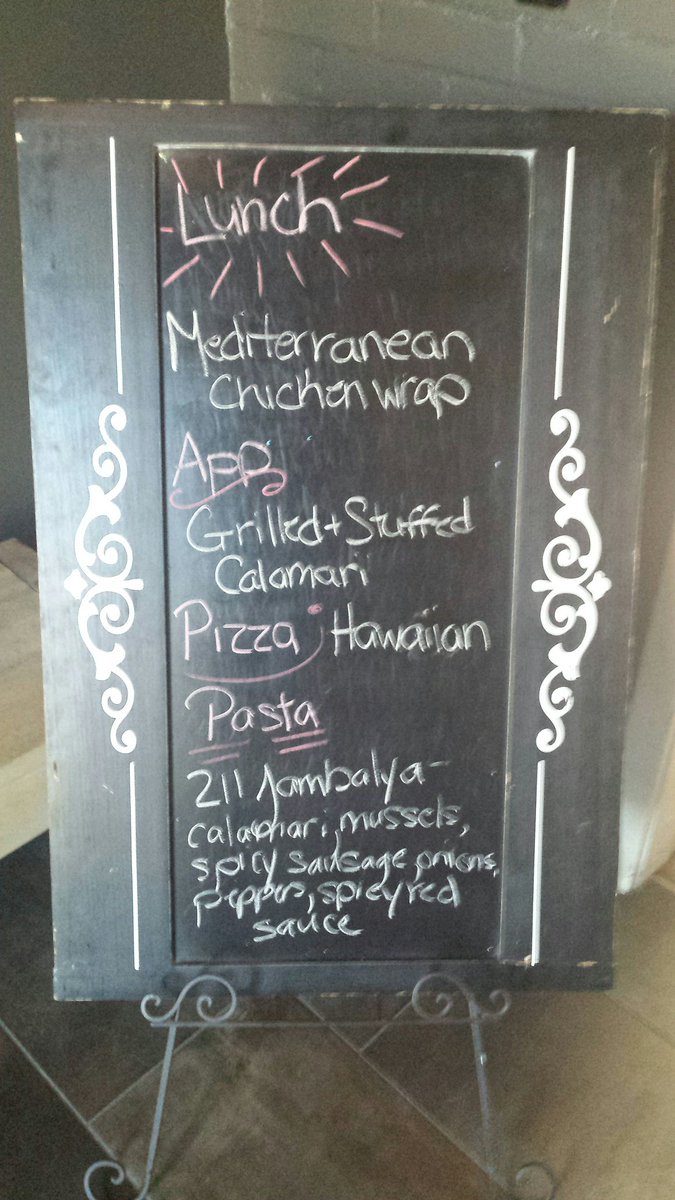 Lunch
Mediterranean
Chicken wrap
App
Grilled + Stuffed
Calamari
Pizza Hawaiian
Pasta
211 Jambalya -
calamari, mussels,
spicy sausage, onions,
peppers, spicy red
sauce